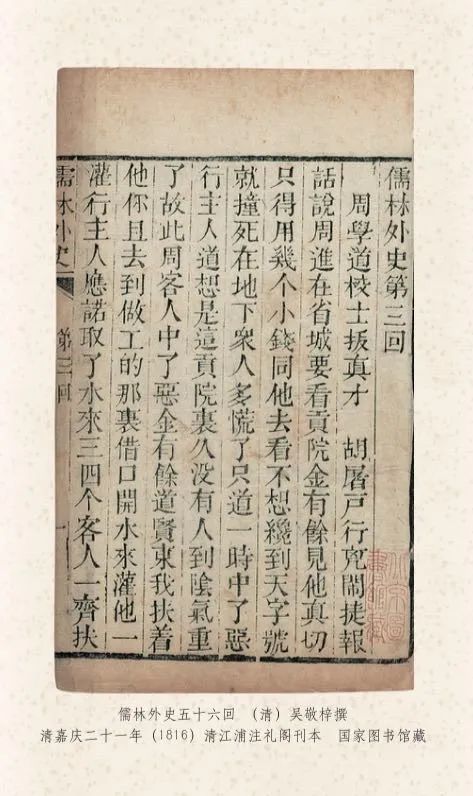 儒林外史第三回
周學道校士拔真才 胡屠戶行兇鬧捷報
話說周進在省城要看貢院金有餘見他真切
只得用幾个小錢同他去看不想纔到天字號
就撞死在地下衆人多慌了只道一時中了惡
行主人道想是這貢院裏久没有人到陰氣重
了故此周客人中了惡金有餘道賢東我扶着
他你且去到做工的那裏借口開水來灌他一
灌行主人應諾取了水來三四个客人一齊扶
儒林外史 第三回 一
儒林外史五十六回 (清) 吴敬梓撰
清嘉庆二十一年 (1816) 清江浦注礼阁刊本 国家图书馆藏